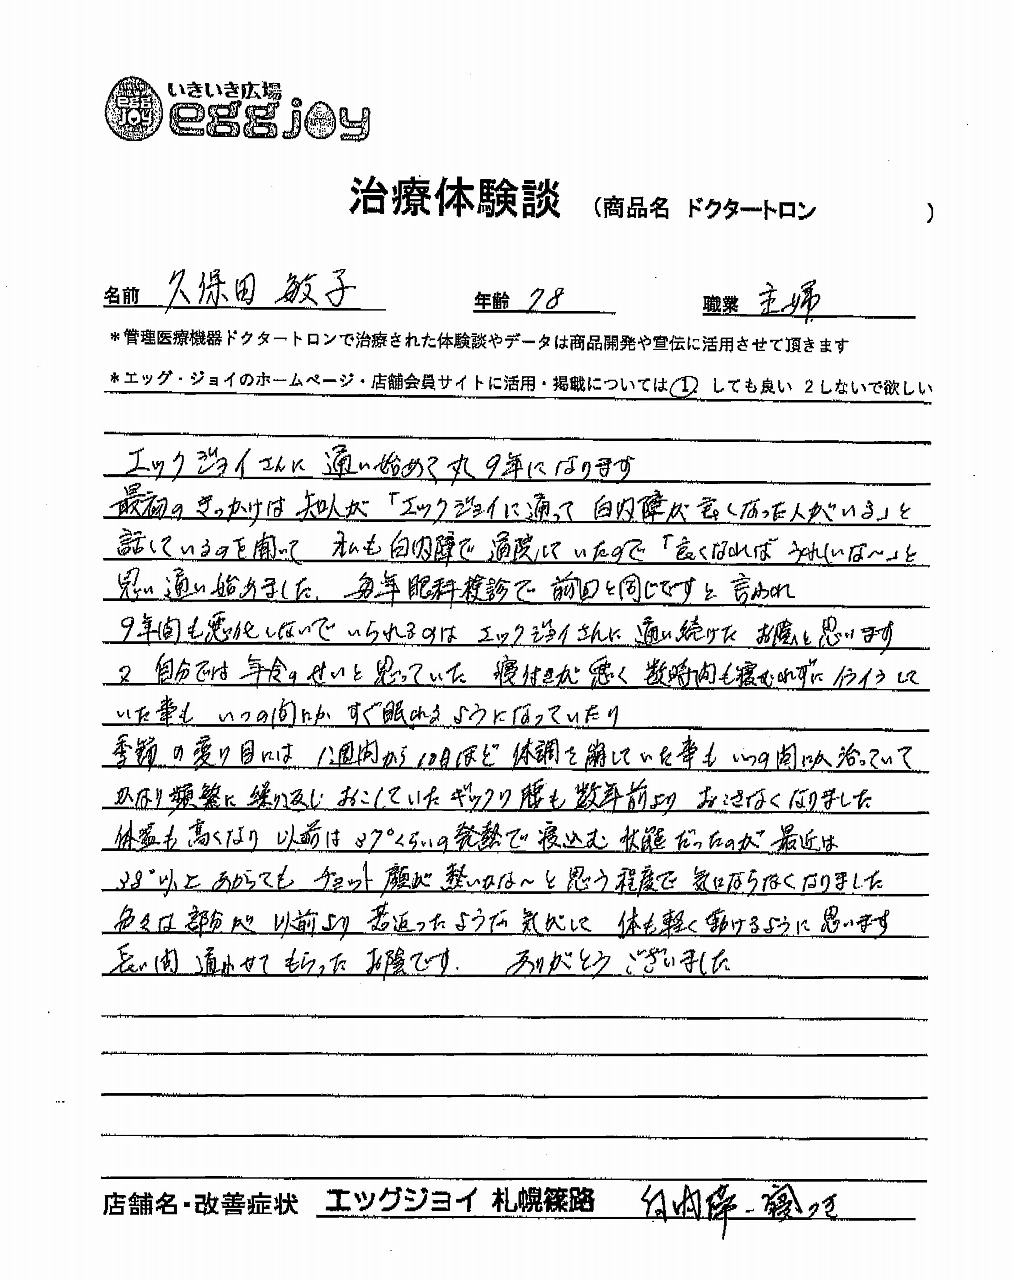 いきいき広場
egg joy
eggjoy
治療体験談 (商品名 ドクタートロン )
名前 久保田 敏子 年齢 78 職業 主婦
*管理医療機器ドクタートロンで治療された体験談やデータは商品開発や宣伝に活用させて頂きます
*エッグ・ジョイのホームページ・店舗会員サイトに活用・掲載については① しても良い 2しないで欲しい
エックジョイさんに 通い始めて丸9年になります
最初のきっかけは 知人が 「エックジョイに通って 白内障が良くなった人がいる」と
話しているのを聞いて 私も白内障で 通院していたので「良くなれば うれしいな〜」と
思い 通い始めました. 毎年 眼科検診で 前回と同じですと 言われ
9年間も悪化しないで いられるのは エックジョイさんに 通い続けた お陰と思います
又 自分では 年令のせいと思っていた 寝付きが悪く 数時間も寝むれずにイライラして
いた事も いつの間にか すぐ眠れるようになっていたり
季節の変り目には 1週間から10日ほど 体調を崩していた事も いつの間にか治っていて
かなり頻繁に 繰り返し おこしていたギックリ腰も 数年前より おこさなくなりました
体温も高くなり 以前は 37°くらいの発熱で 寝込む 状態だったのが 最近は
38°以上 あがっても チョット 顔が 熱いかな〜と思う程度で 気にならなくなりました
色々な部分が 以前より 若返ったような気がして 体も軽く動けるように思います
長い間 通わせて もらった お陰です. ありがとう ございました
店舗名・改善症状 エッグジョイ 札幌篠路 白内障 - 寝つき